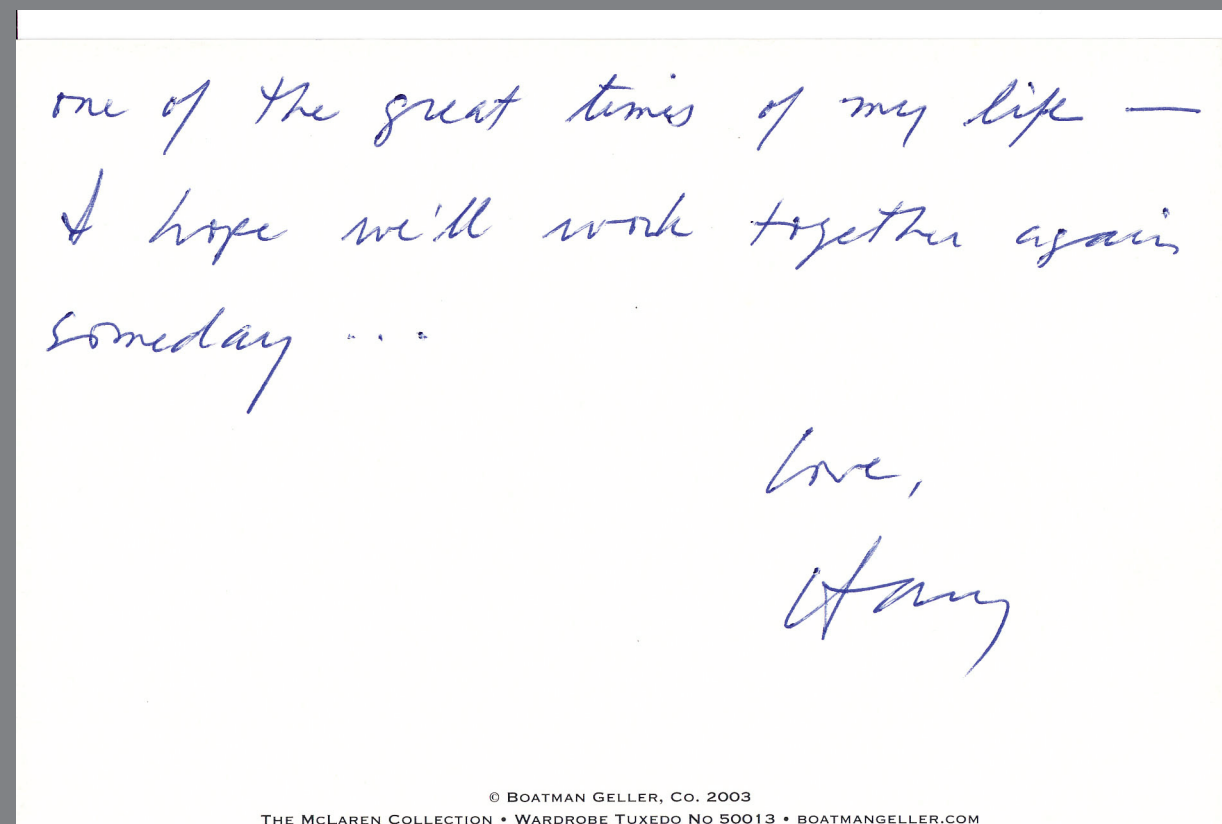 one of the great times of my life —
I hope we'll work together again
someday ...
Love,
Harry
© BOATMAN GELLER, CO. 2003
THE MCLAREN COLLECTION • WARDROBE TUXEDO NO 50013 • BOATMANGELLER.COM